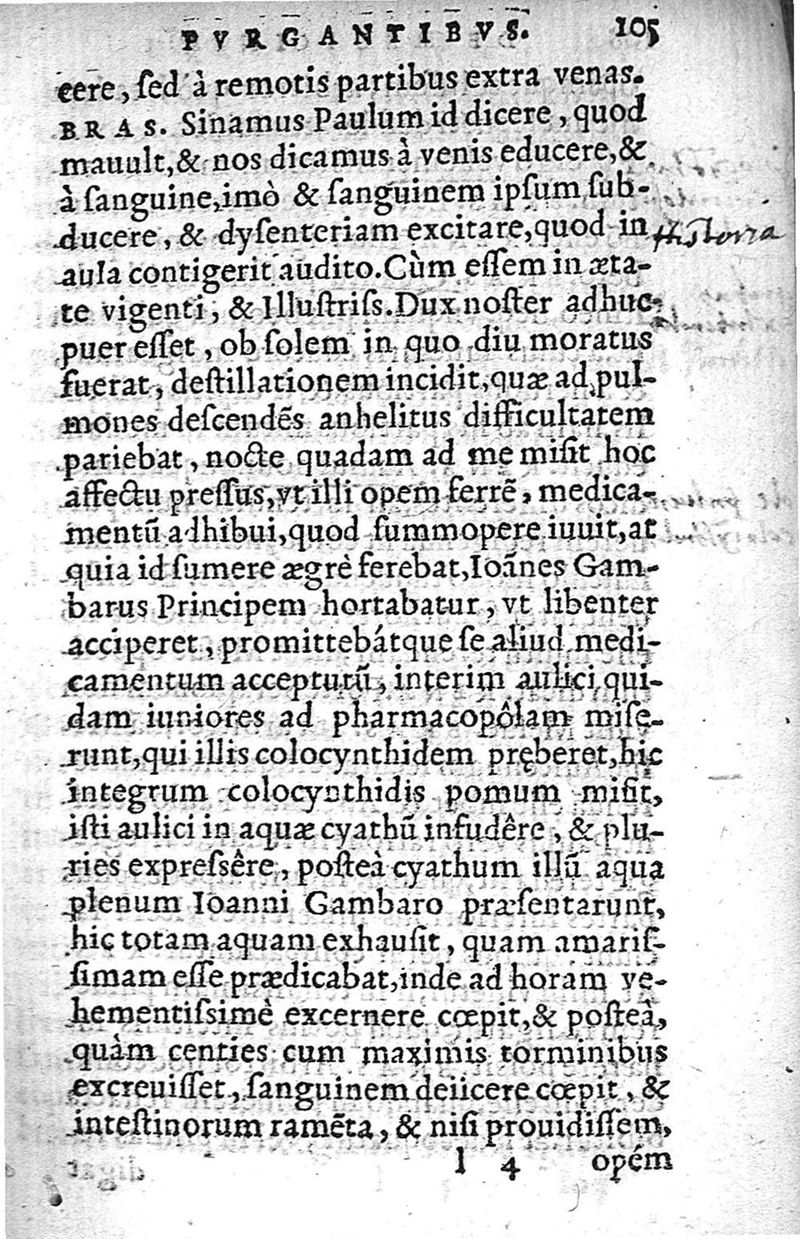 PVRGANTIBVS. 105
cere, ſed à remotis partibus extra venas.
BRAS. Sinamus Paulum id dicere, quod
mauult, & nos dicamus à venis educere, &
à ſanguine, imò & ſanguinem ipſum ſub-
ducere, & dyſenteriam excitare, quod in
Historia
aula contigerit audito. Cùm eſſem in æta-
te vigenti, & Illuſtriſs. Dux noſter adhuc
puer eſſet, ob ſolem in quo diu moratus
fuerat, deſtillationem incidit, quæ ad pul-
mones deſcendẽs anhelitus difficultatem
pariebat, nocte quadam ad me miſit hoc
affectu preſſus, vt illi opem ferrẽ, medica-
mentũ adhibui, quod ſummopere iuuit, at
quia id ſumere ægrè ferebat, Ioãnes Gam-
barus Principem hortabatur, vt libenter
acciperet, promittebátque ſe aliud medi-
camentum accepturũ, interim aulici qui-
dam iuniores ad pharmacopôlam miſe-
runt, qui illis colocynthidem pręberet, hic
integrum colocynthidis pomum miſit,
iſti aulici in aquæ cyathũ infudêre, & plu-
ries expreſsêre, poſteà cyathum illũ aqua
plenum Ioanni Gambaro præſentarunt,
hic totam aquam exhauſit, quam amariſ-
ſimam eſſe prædicabat, inde ad horam ve-
hementiſsimè excernere cœpit, & poſteà,
quàm centies cum maximis torminibus
excreuiſſet, ſanguinem deiicere cœpit, &
inteſtinorum ramẽta, & niſi prouidiſſem,
l 4 opém